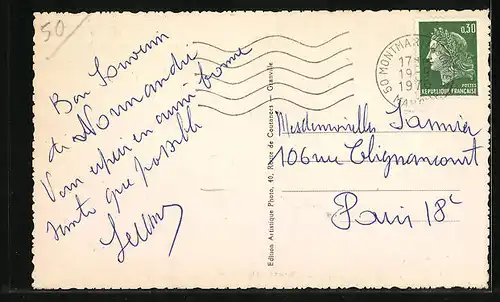 50
Bon Souvenir
de Normandie
Vous espère en aussi bonne
santé que possible
0,30
POSTES
REPUBLIQUE FRANÇAISE
50 MONTMAR
17
19
Edition Artistique Photo, 40, Route de Coutances - Granville
Mesdemoiselles Lannier
106 rue Clignancourt
Paris 18e